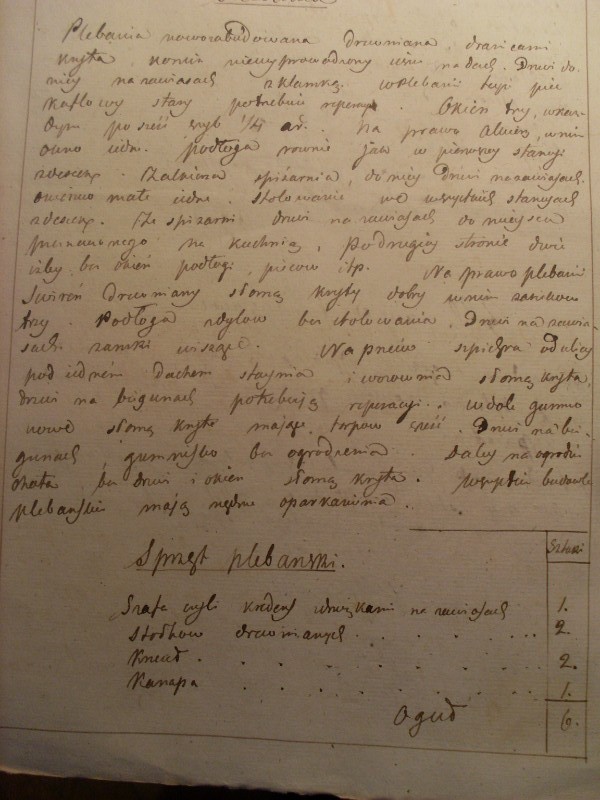 Plebania nowozabudowana drewniana, dranicami
kryta, komin niewyprowadzony nad dach. Drzwi do
niey na zawiasach z klamką. w Plebanii tejże piec
kaflowy stary potrzebuie reperacyi. Okien trzy, w każ-
dym po sześć szyb. Na prawo Alkierz, w nim
okno iedno. podłoga rownie jak w pierwszey stancyi
z desczek. spiżarnia, do niey Drzwi na zawiasach.
małe iedne. Stolowanie we wszystkich stancyach
z desczek. Ze spiżarni drzwi na zawiasach do miejsca
na kuchnią, po drugiey stronie dwie
izby bez okien podłogi, piecow itp. Na prawo plebanii
Świren drewniany słomą kryty dobry w nim zasiekow
trzy. Podłoga z dylow bez stolowania. Drzwi na zawia-
sach zamki wiszące. Na przeciw szpichrza od ulicy
pod iednem dachem stajnia i wozownia słomą kryta,
drzwi na bigunach potrzebują reperacyi. w dole gumno
nowe słomą kryte mające torpow sześć. Drzwi na bi-
gunach, gumnisko bez ogrodzenia. Daley na ogrodzie
chata bez drzwi i okien słomą kryta. Wszystkie budowle
plebańskie mają nędzne oparkanienia.
Sztuki
Sprzęt plebański.
Szafa czyli kredens na zawiasach 1.
Stołkow drewnianych . . . . . . 2
. . . . . . 2.
Kanapa . . . . . . 1.
Oguł 6.